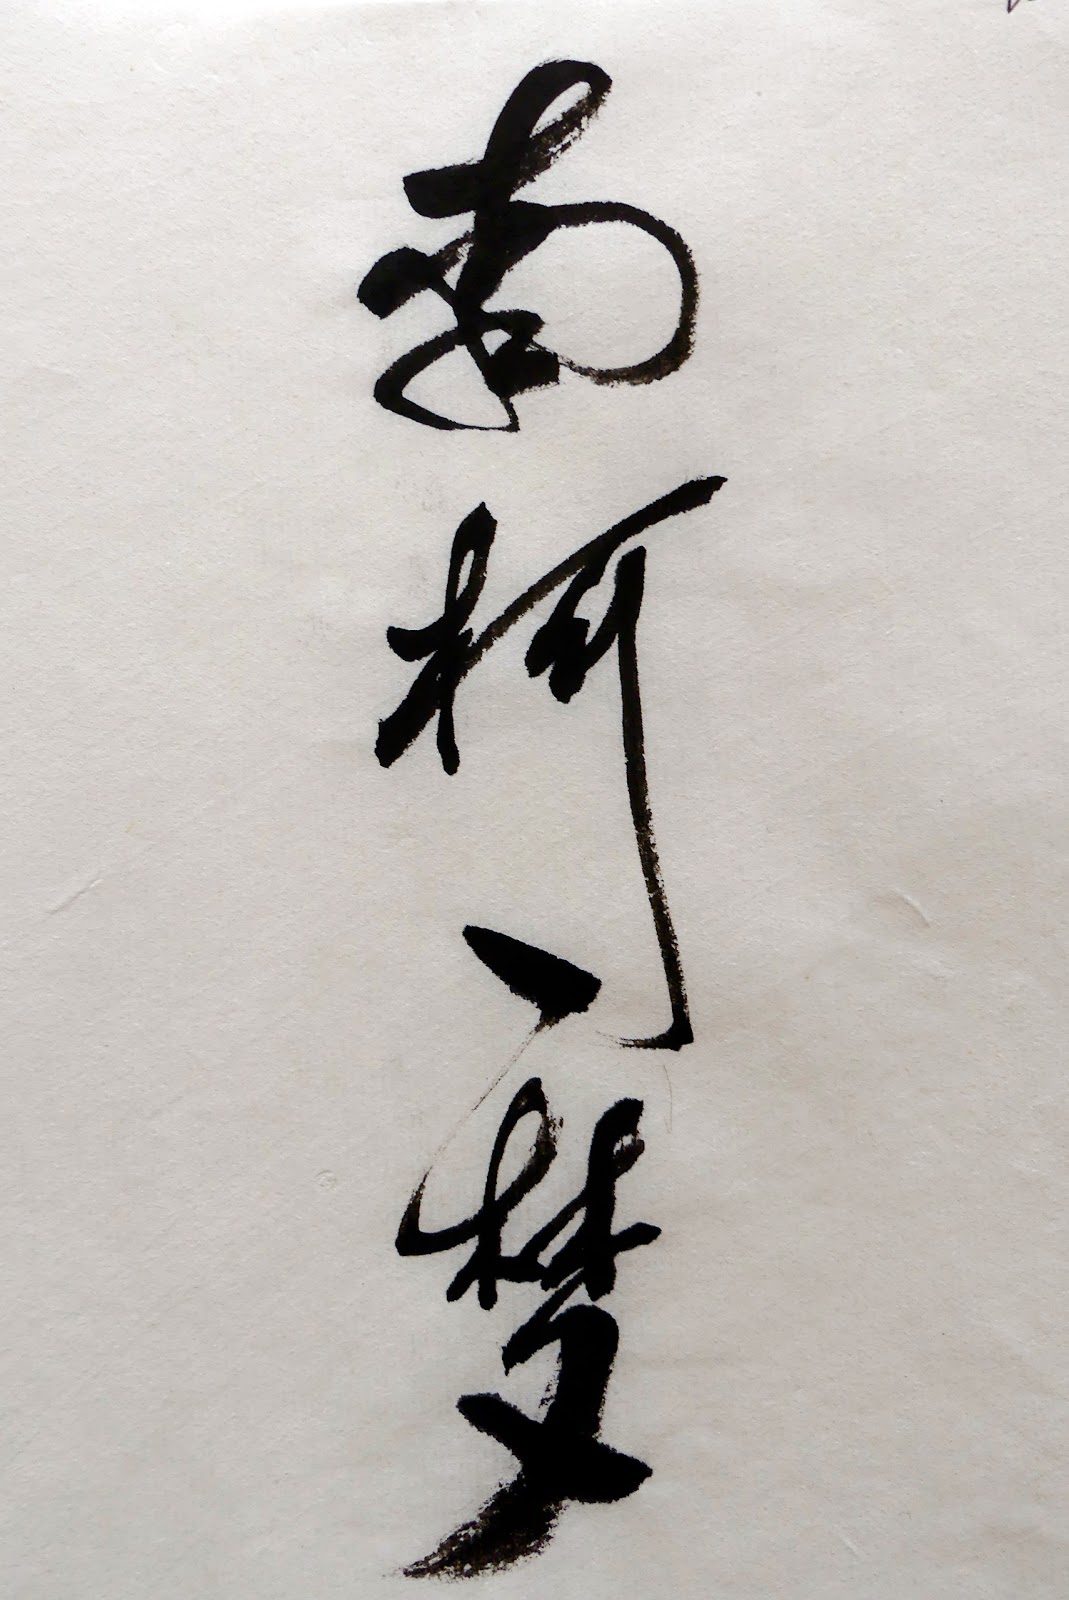 南柯一梦